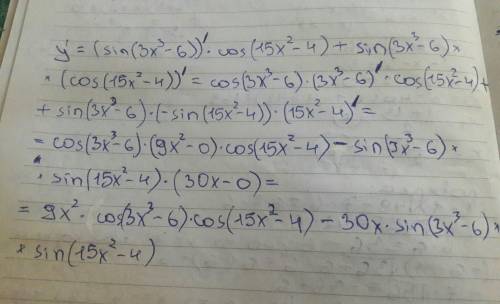 y' = (sin(3x³-6))' · cos(15x²-4) + sin(3x³-6) ×
× (cos(15x²-4))' = cos(3x³-6) · (3x³-6)' · cos(15x²-4) +
+ sin(3x³-6) · (-sin(15x²-4)) · (15x²-4)' =
= cos(3x³-6) · (9x²-0) · cos(15x²-4) - sin(3x³-6) ×
· sin(15x²-4) · (30x-0) =
= 9x² · cos(3x³-6) · cos(15x²-4) - 30x · sin(3x³-6) ×
× sin(15x²-4)